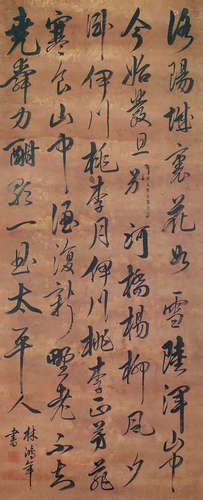 洛陽城裏花如雪陸渾山中
今始發旦別河橋楊柳風夕
卧伊川桃李月伊川桃李正芳菲
寒食山中酒復新野老不知
堯舜力酣歌一曲太平人
林鴻年書